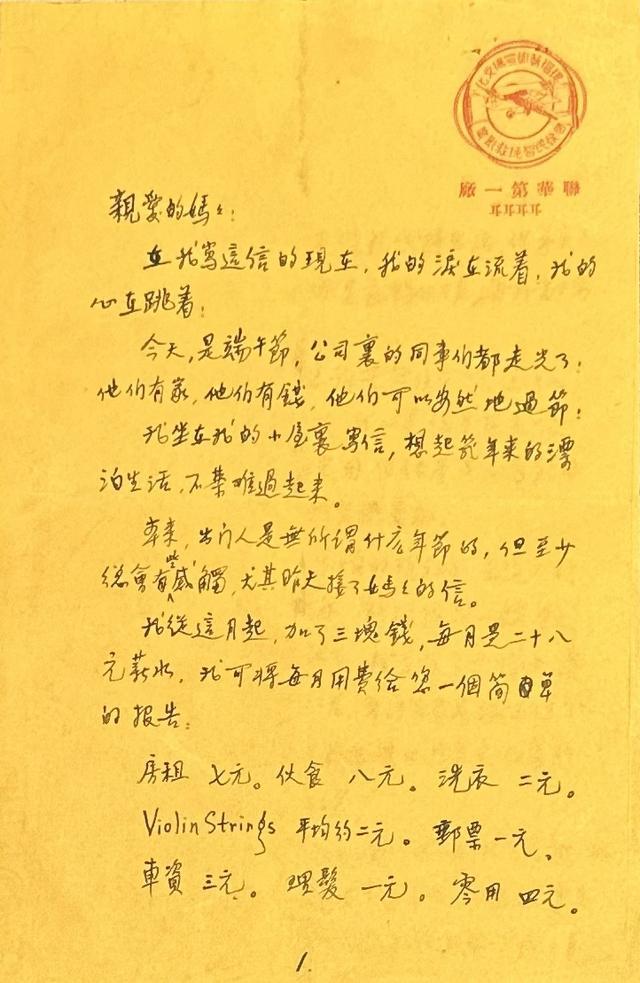 聯華第一廠
親愛的媽々:
在我寫這信的現在,我的淚在流着,我的
心在跳着;
今天,是端午節,公司裏的同事们都走光了;
他们有家,他们有錢,他们可以安然地過節;
我坐在我的小屋裏寫信,想起幾年來的漂
泊生活,不禁難過起來。
本來,出门人是無所謂什麽年節的,但至少
總會有些感觸,尤其昨天接了媽々的信。
我從這月起,加了三塊錢,每月是二十八
元薪水,我可將每月用費给您一個简單
的报告:
房租 七元。伙食 八元。洗衣 二元。
Violin Strings 平均约二元。郵票一元、
車資 三元。理髮 一元。零用 四元。
1.